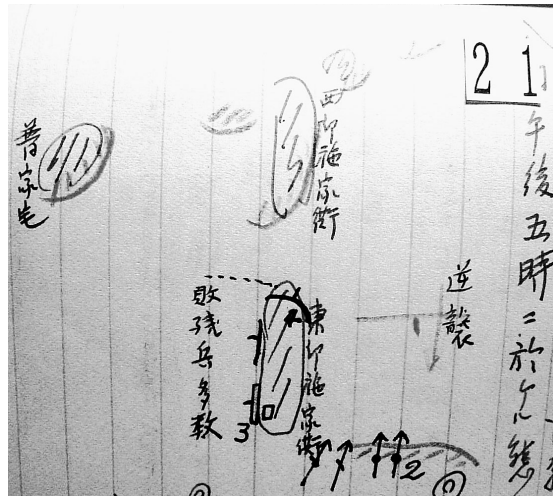 21
午後五時ニ於ケル態
逆襲
西卯施家街
東卯施家街
敗残兵多数
3
2
普家宅